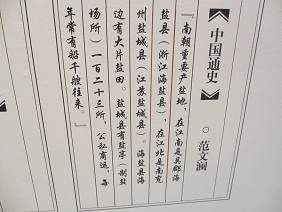 《中国通史》
○范文澜
『南朝重要产盐地，在江南是吴郡海
盐县（浙江海盐县），在江北是南兖
州盐城县（江苏盐城县）。海盐县海
边有大片盐田。盐城县有盐亭（制盐
场所）一百二十三所，公私商运，每
年常有船千艘往来。』